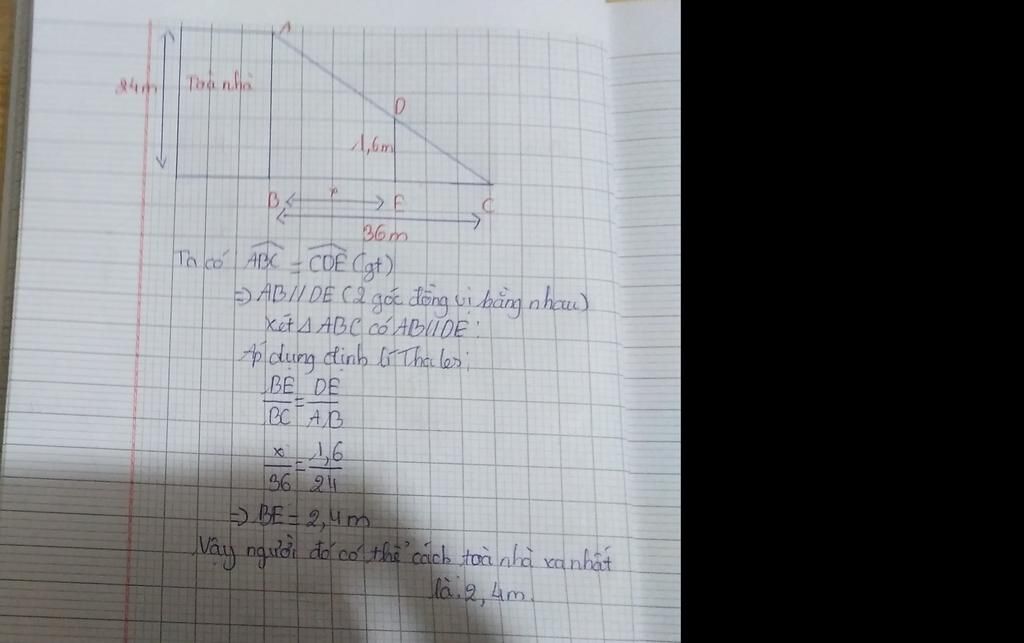 A
24m
Toà nhà
D
1,6m
B
x
E
C
36m
Ta có ABC = CDE (gt)
=> AB//DE (2 góc đồng vị bằng nhau)
xét Δ ABC có AB//DE:
Áp dụng định lí Thales:
BE/BC = DE/AB
x/36 = 1,6/24
=> BE = 2,4m
Vậy người đó có thể cách toà nhà xa nhất
là: 2,4m.